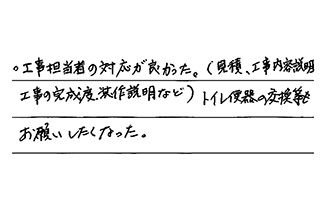 。工事担当者の対応が良かった。(見積、工事内容説明
工事の完成度、操作説明など)トイレ便器の交換等も
お願いしたくなった。